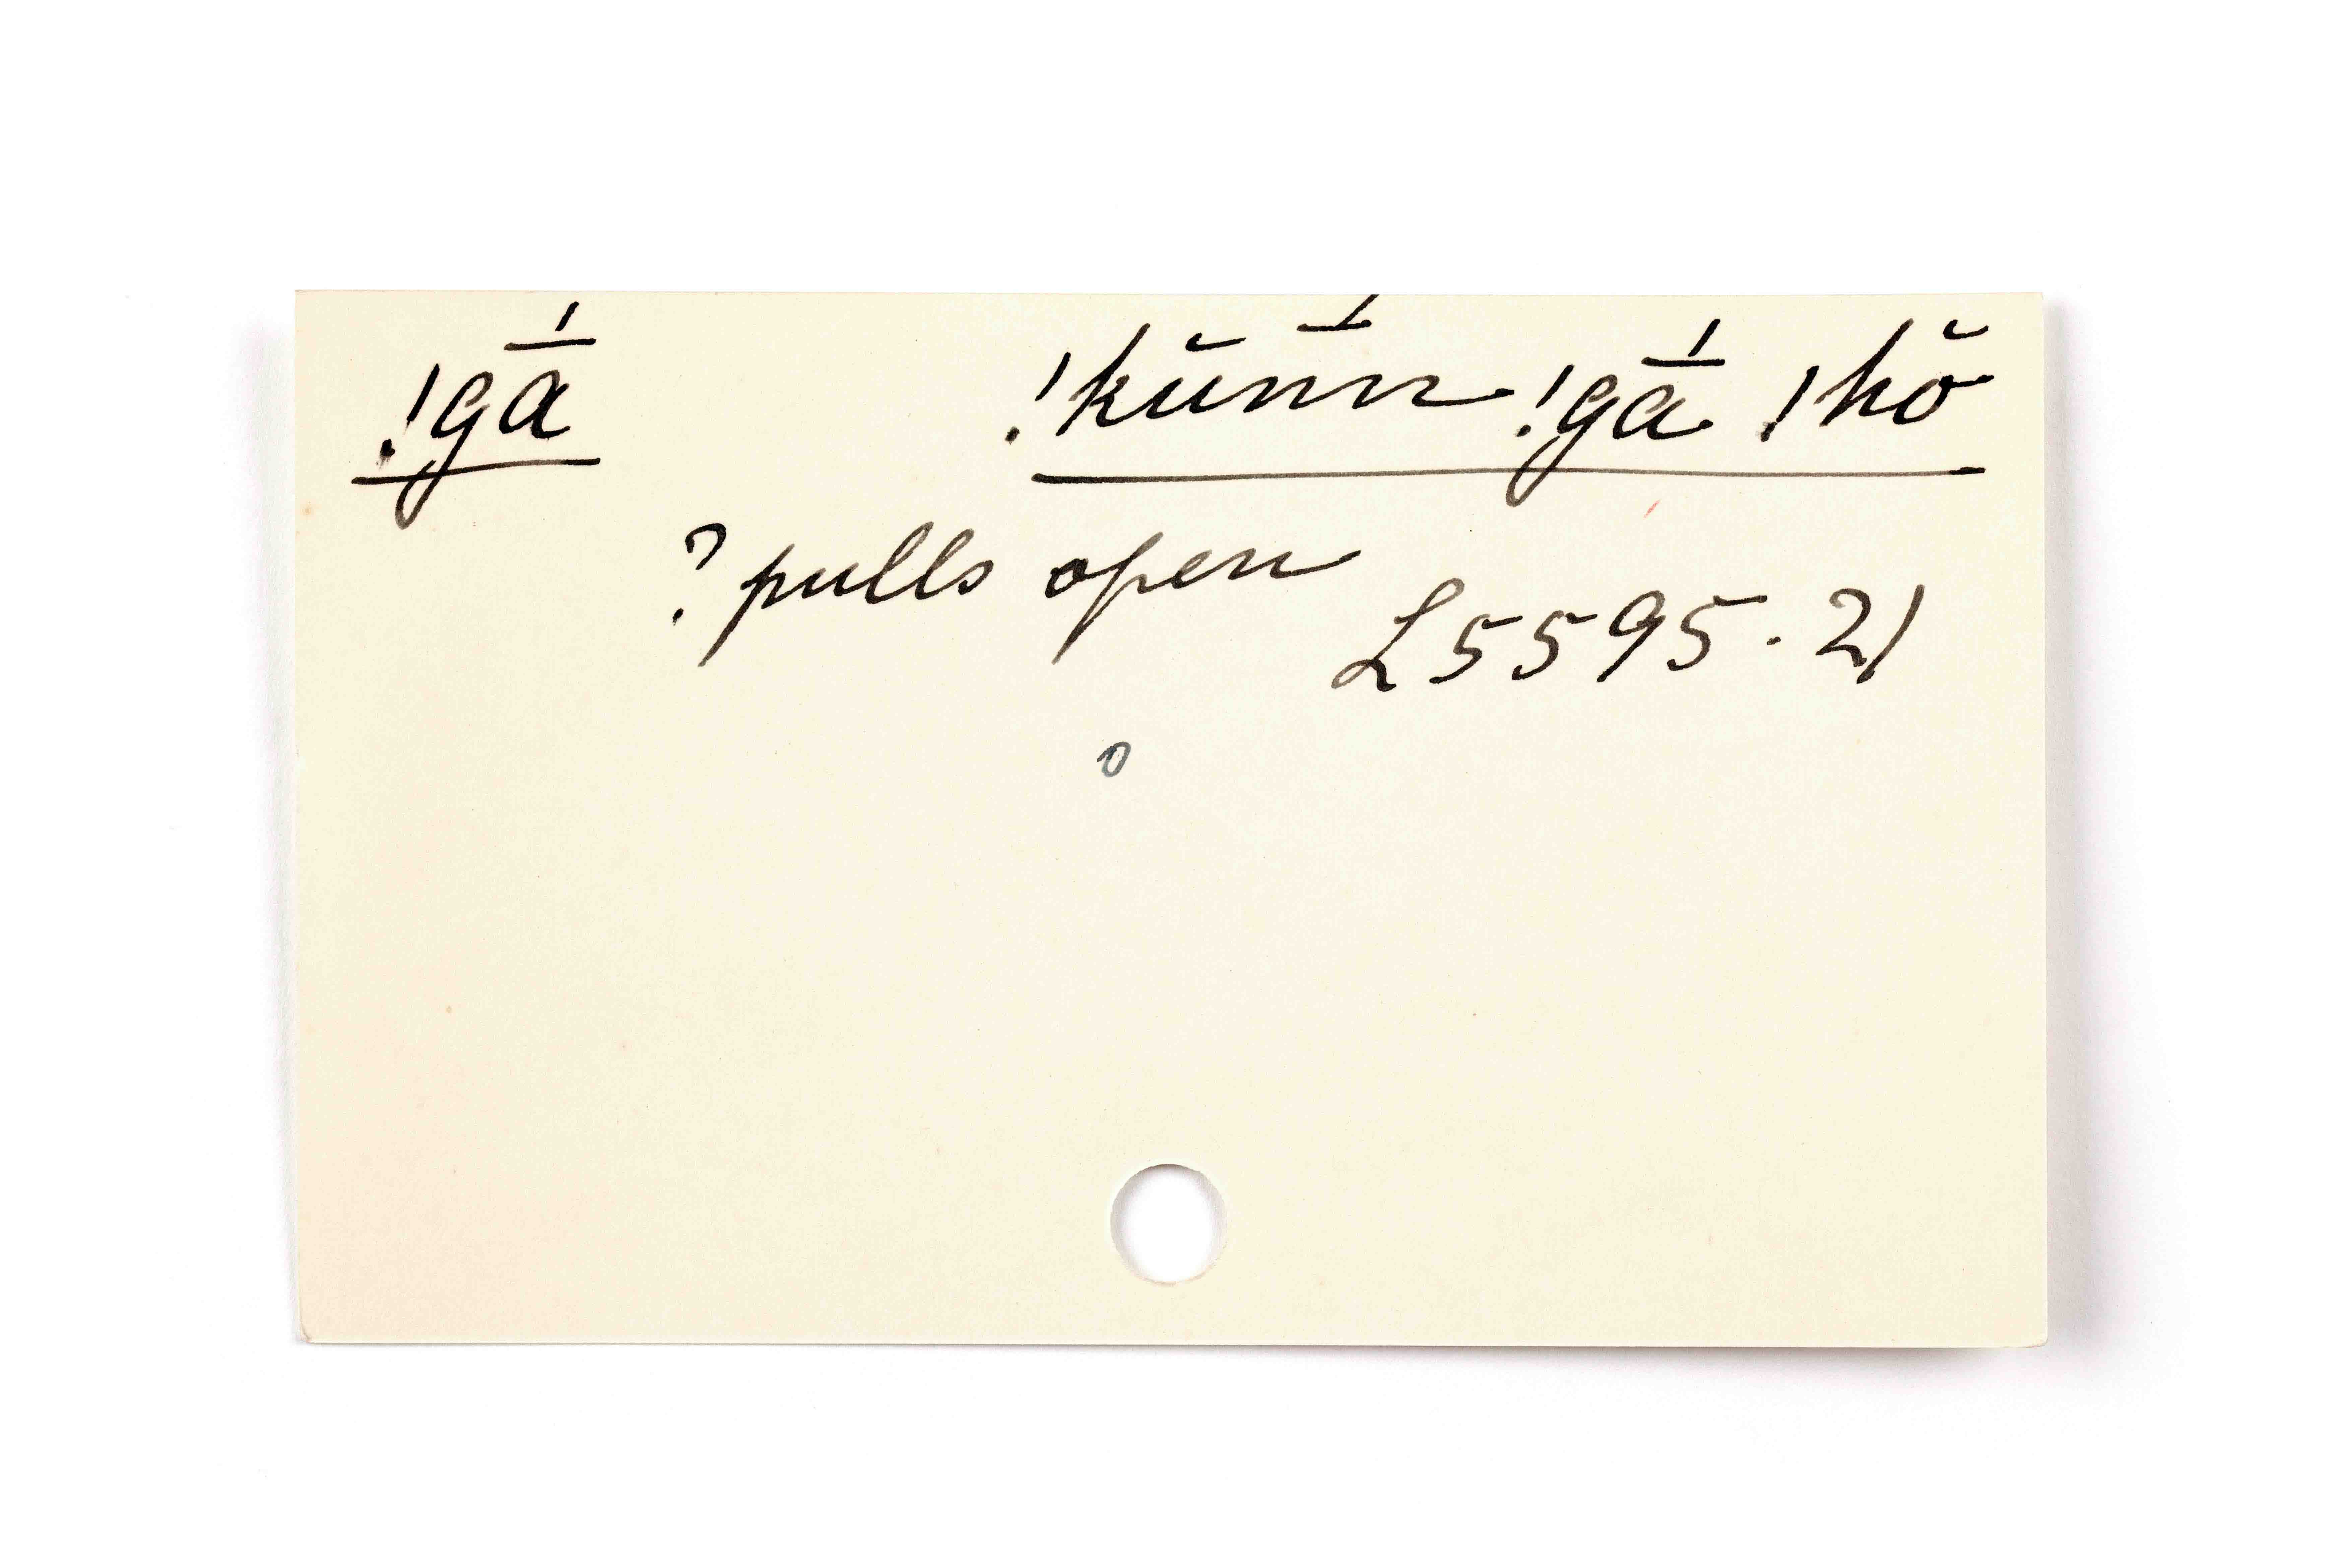 !gā́ !kŭnn̄́ !gā́ !hŏ
? pulls open
L5595.21
o